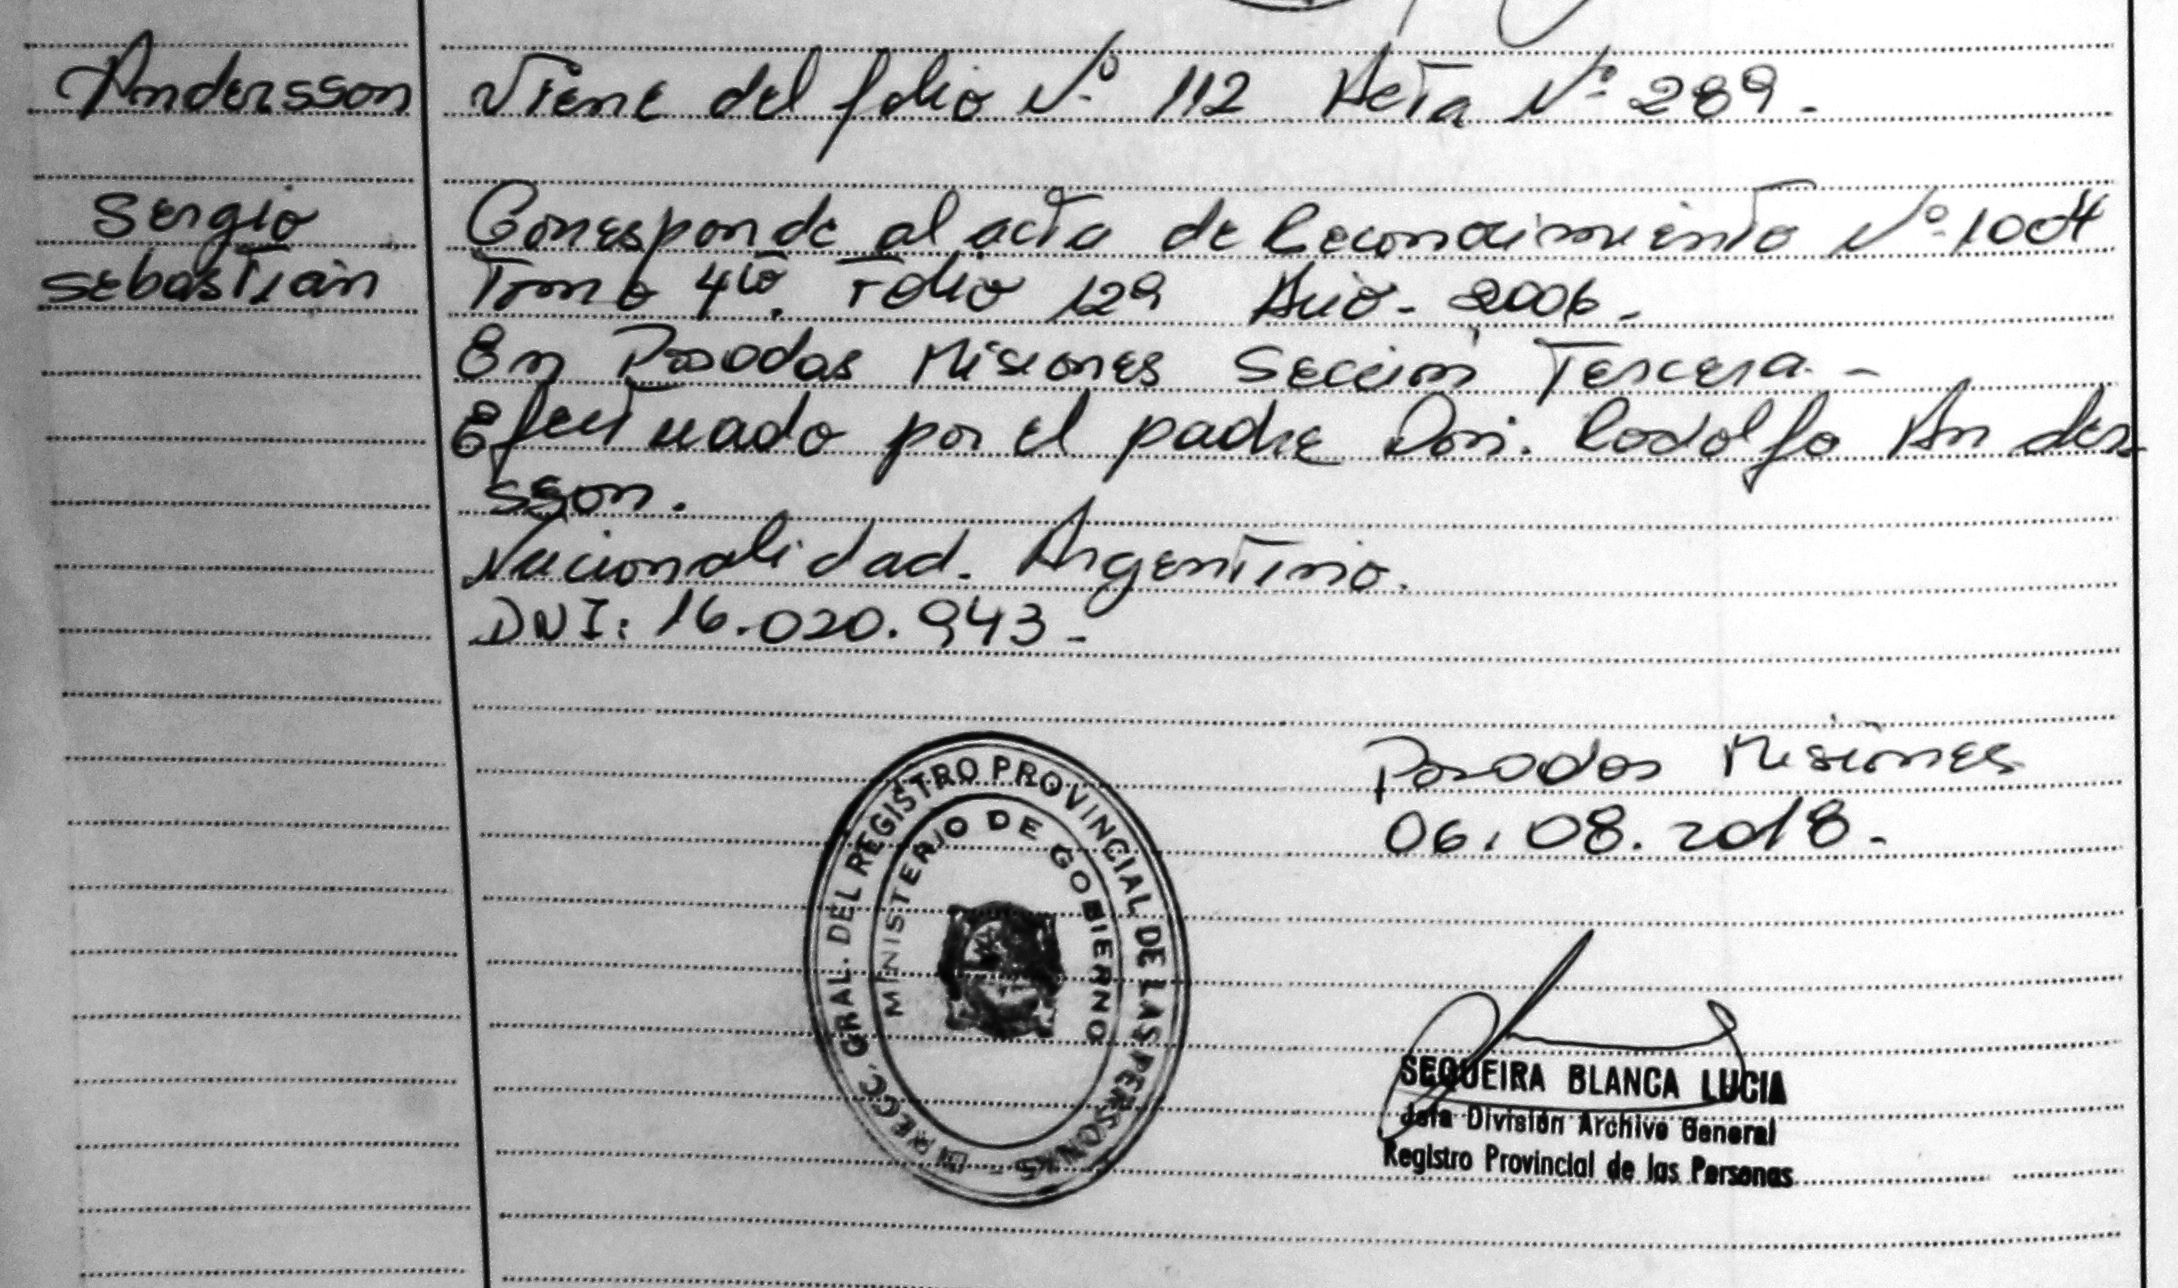 Andersson
Viene del folio Nº 112 Acta Nº 289.
Sergio
Sebastián
Corresponde al acta de Reconocimiento Nº 1004
Tomo 4to. Folio 129 Año - 2006.
En Posadas Misiones Sección Tercera. -
Efectuado por el padre Don. Rodolfo Ander-
sson.
Nacionalidad. Argentino.
DNI: 16.020.943 -
Posadas Misiones
06.08.2018.-
DIRECC. GRAL. DEL REGISTRO PROVINCIAL DE LAS PERSONAS -
MINISTERIO DE GOBIERNO
SEQUEIRA BLANCA LUCIA
Jefa División Archivo General
Registro Provincial de las Personas